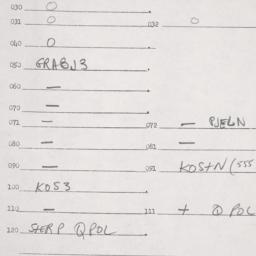 030 O
031 O 032 O
040 O
050 GRABN3
060 —
070 —
071 — 072 — PJELN
080 — 081 —
090 — 091 KOSTN (555
100 KOS3
110 — 111 + QPOL
120 STERP QPOL